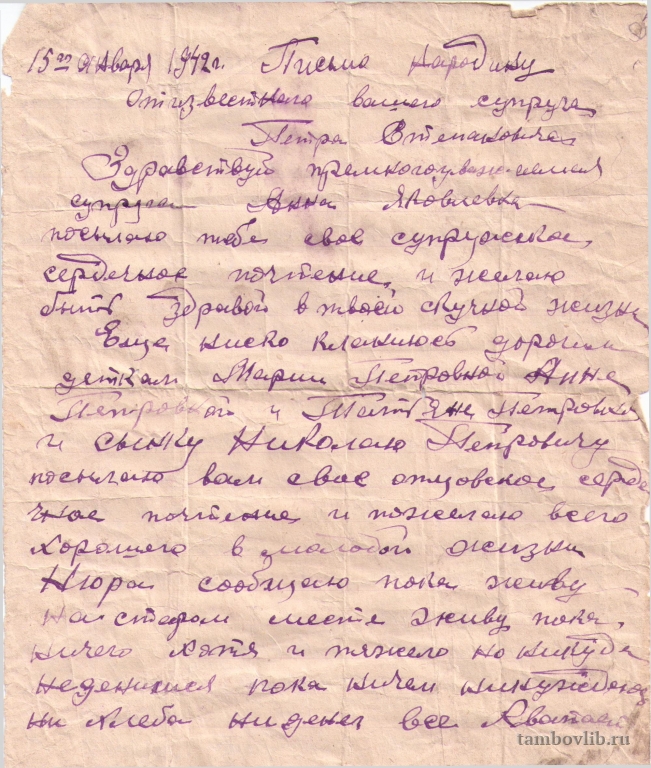 15го января 1942г. Письмо народину
от известного вашего супруга
Петра Степановича
Здравствуй премногоуважаемая
супруга Анна Яковлевна
посылаю тебе свое супружское
сердечное почтение, и желаю
быть здравой в твоей скучной жизни
Еще ниско кланиюсь дорогим
деткам Марии Петровной Анне
Петровной и Татьяне Петровной
и сынку Николаю Петровичу
посылаю вам свое отцовское серде
чное почтение и пожелаю всего
хорошего в молодой жизни
Нюра сообщаю пока живу
на старом месте живу пока,
ничего хотя и тяжело но никуда
неденишся пока ничем нинуждаюсь
ни хлеба ниденег все хватает
tambovlib.ru